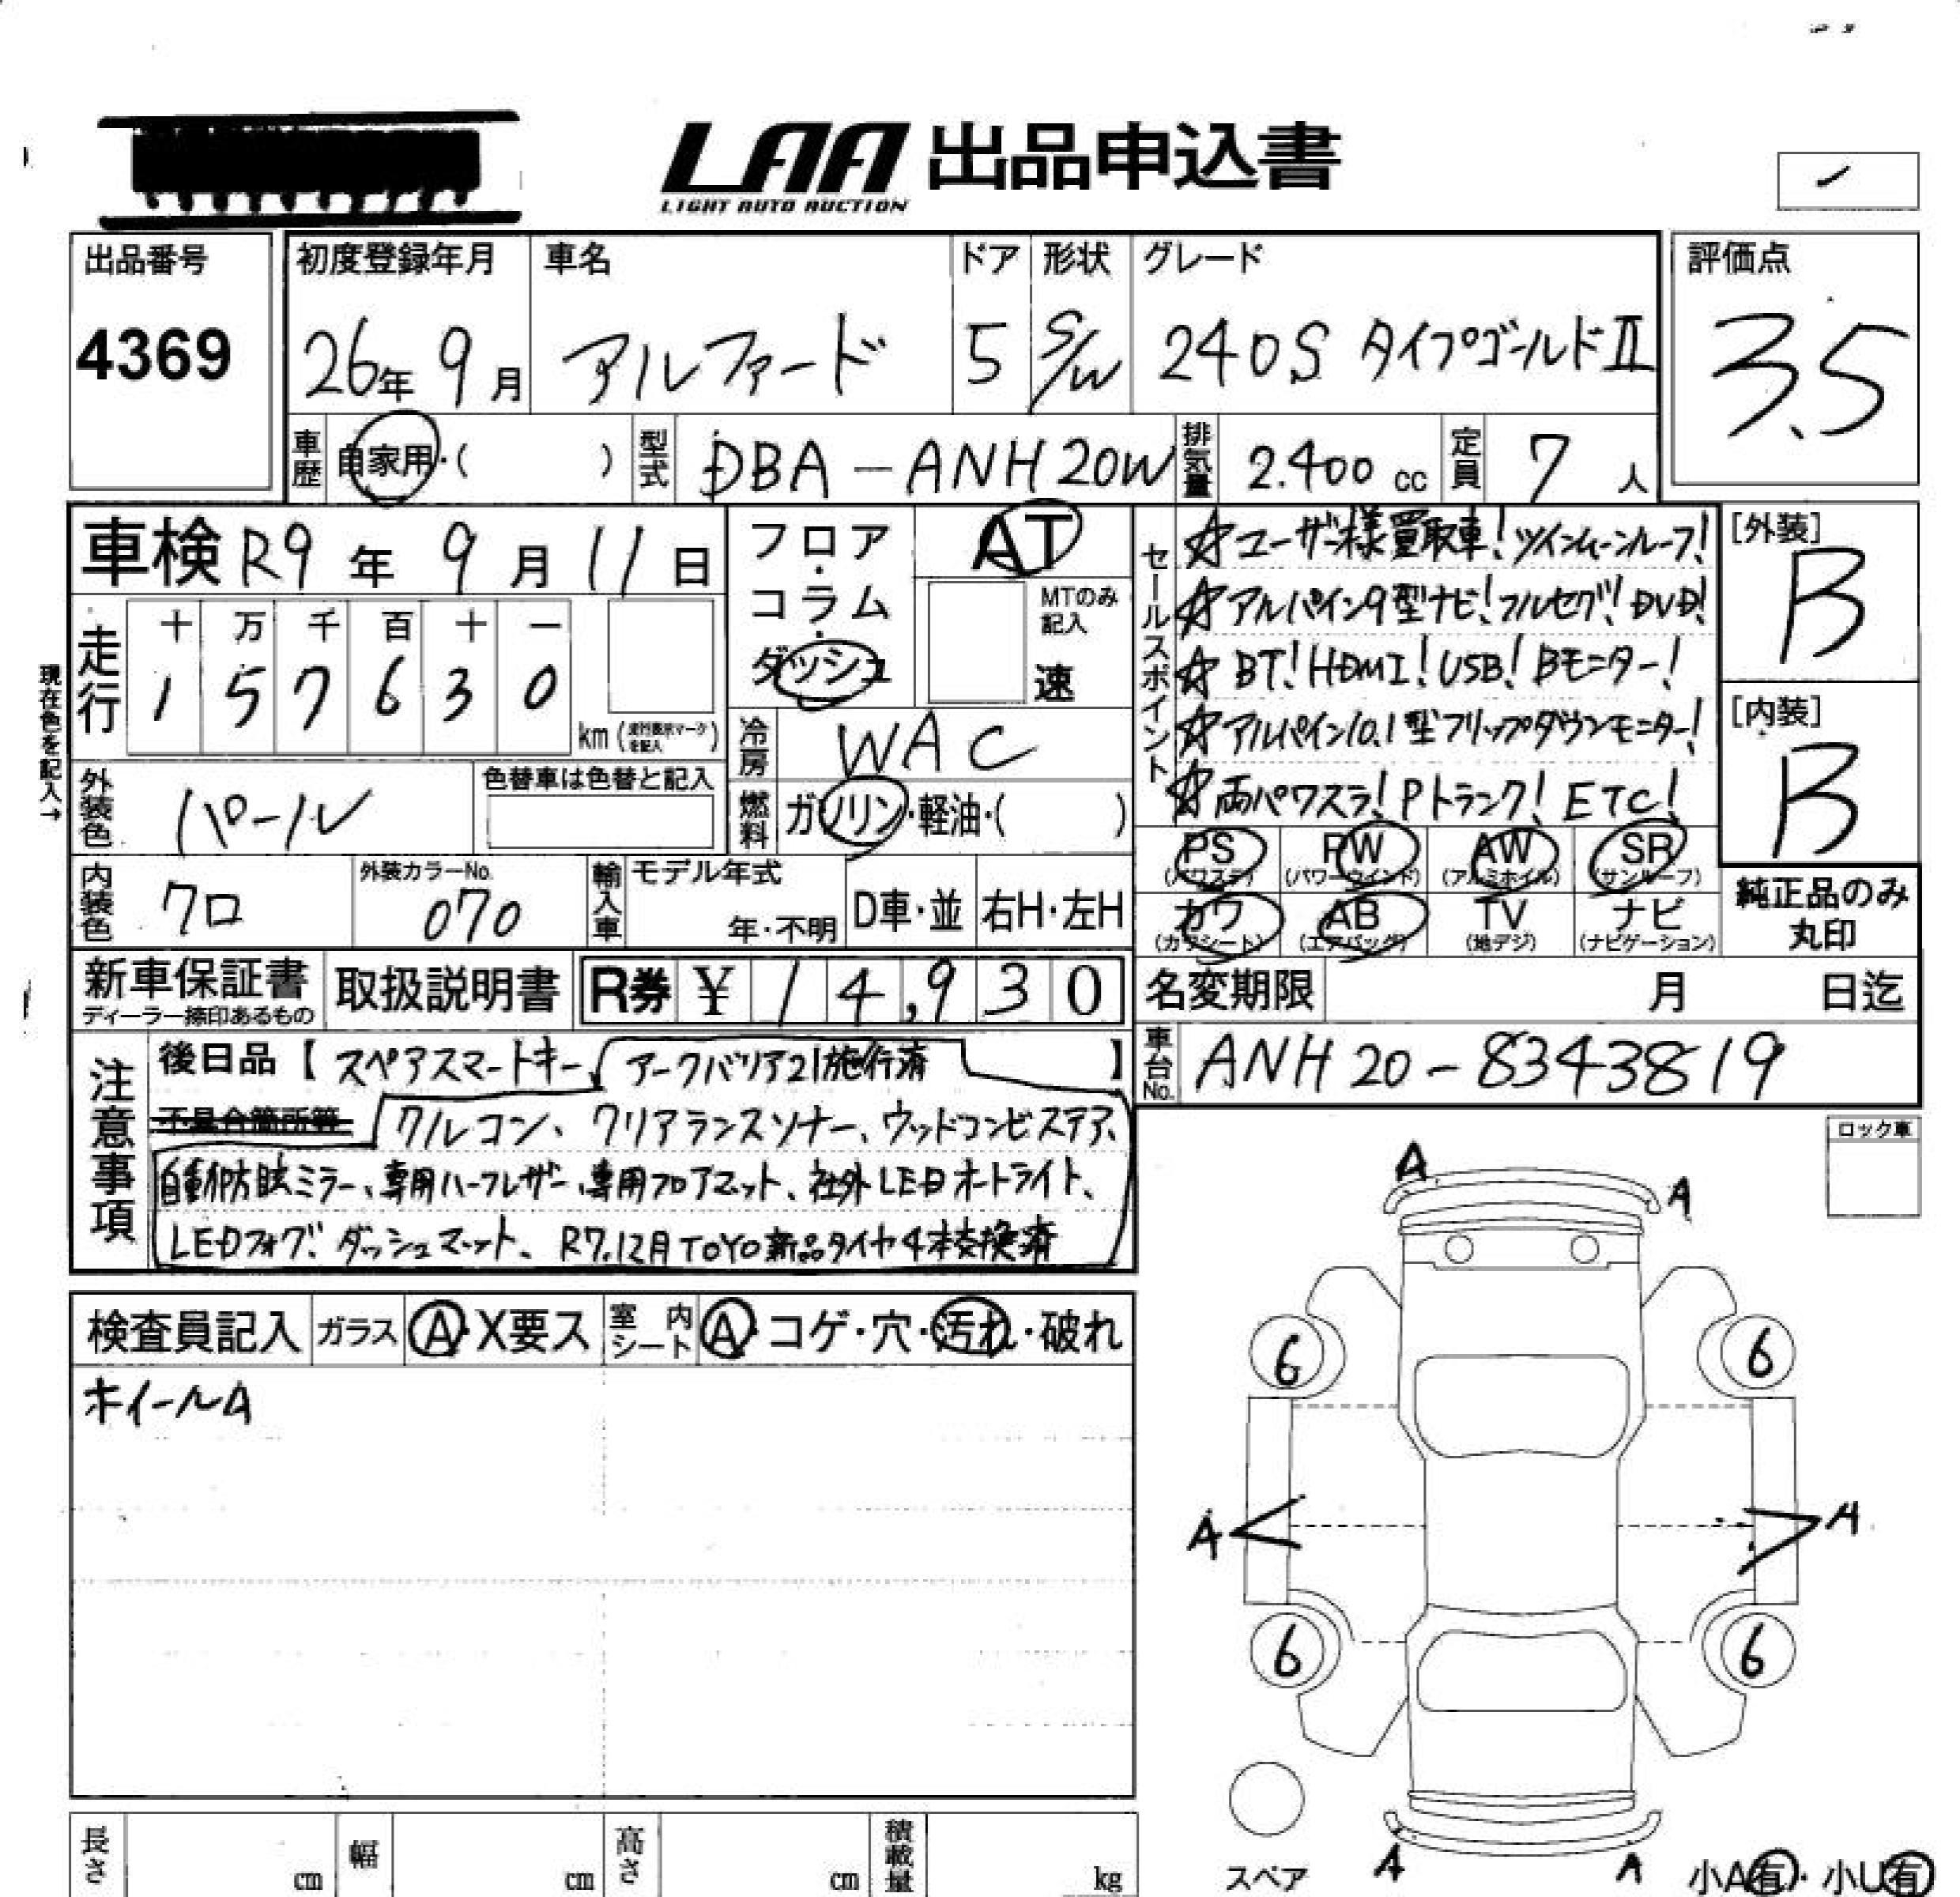 LAA 出品申込書
LIGHT AUTO AUCTION
出品番号
4369
初度登録年月
26年 9月
車名
アルファード
ドア
5
形状
S/W
グレード
240S タイプゴールドⅡ
評価点
3.5
車歴 自家用・( )
型式 DBA-ANH20W
排気量 2.400 cc
定員 7 人
車検 R9年 9月 11日
走行
十 万 千 百 十 一
1 5 7 6 3 0
km (走行表示マークを記入)
現在色を記入→
外装色 パール
色替車は色替と記入
内装色 クロ
外装カラーNo.
070
フロア・コラム・ダッシュ
AT
MTのみ記入
速
冷房 WAC
燃料 ガソリン・軽油・( )
輸入車
モデル年式
年・不明
D車・並
右H・左H
セールスポイント
☆ユーザー様買取車!ツインムーンルーフ!
☆アルパイン9型ナビ!フルセグ!DVD!
☆BT!HDMI!USB!Bモニター!
☆アルパイン10.1型フリップダウンモニター!
☆両パワスラ!Pトランク!ETC!
[外装]
B
[内装]
B
PS (パワステ)
PW (パワーウインド)
AW (アルミホイル)
SR (サンルーフ)
カワ (カワシート)
AB (エアバッグ)
TV (地デジ)
ナビ (ナビゲーション)
純正品のみ丸印
新車保証書
ディーラー捺印あるもの
取扱説明書
R券 ¥ 14,930
名変期限 月 日迄
車台No. ANH20-8343819
注意事項
後日品【スペアスマートキー、アークバリア21施行済】
不具合箇所等 クルコン、クリアランスソナー、ウッドコンビステア、
自動防眩ミラー、専用ハーフレザー、専用フロアマット、社外LEDオートライト、
LEDフォグ、ダッシュマット、R7.12月TOYO新品タイヤ4本交換済
検査員記入
ガラス A・X要ス
室内シート A・コゲ・穴・汚れ・破れ
ホイールA
ロック車
A
A
6
6
A
A
6
6
スペア
A
A
小A有・小U有
長さ cm
幅 cm
高さ cm
積載量 kg